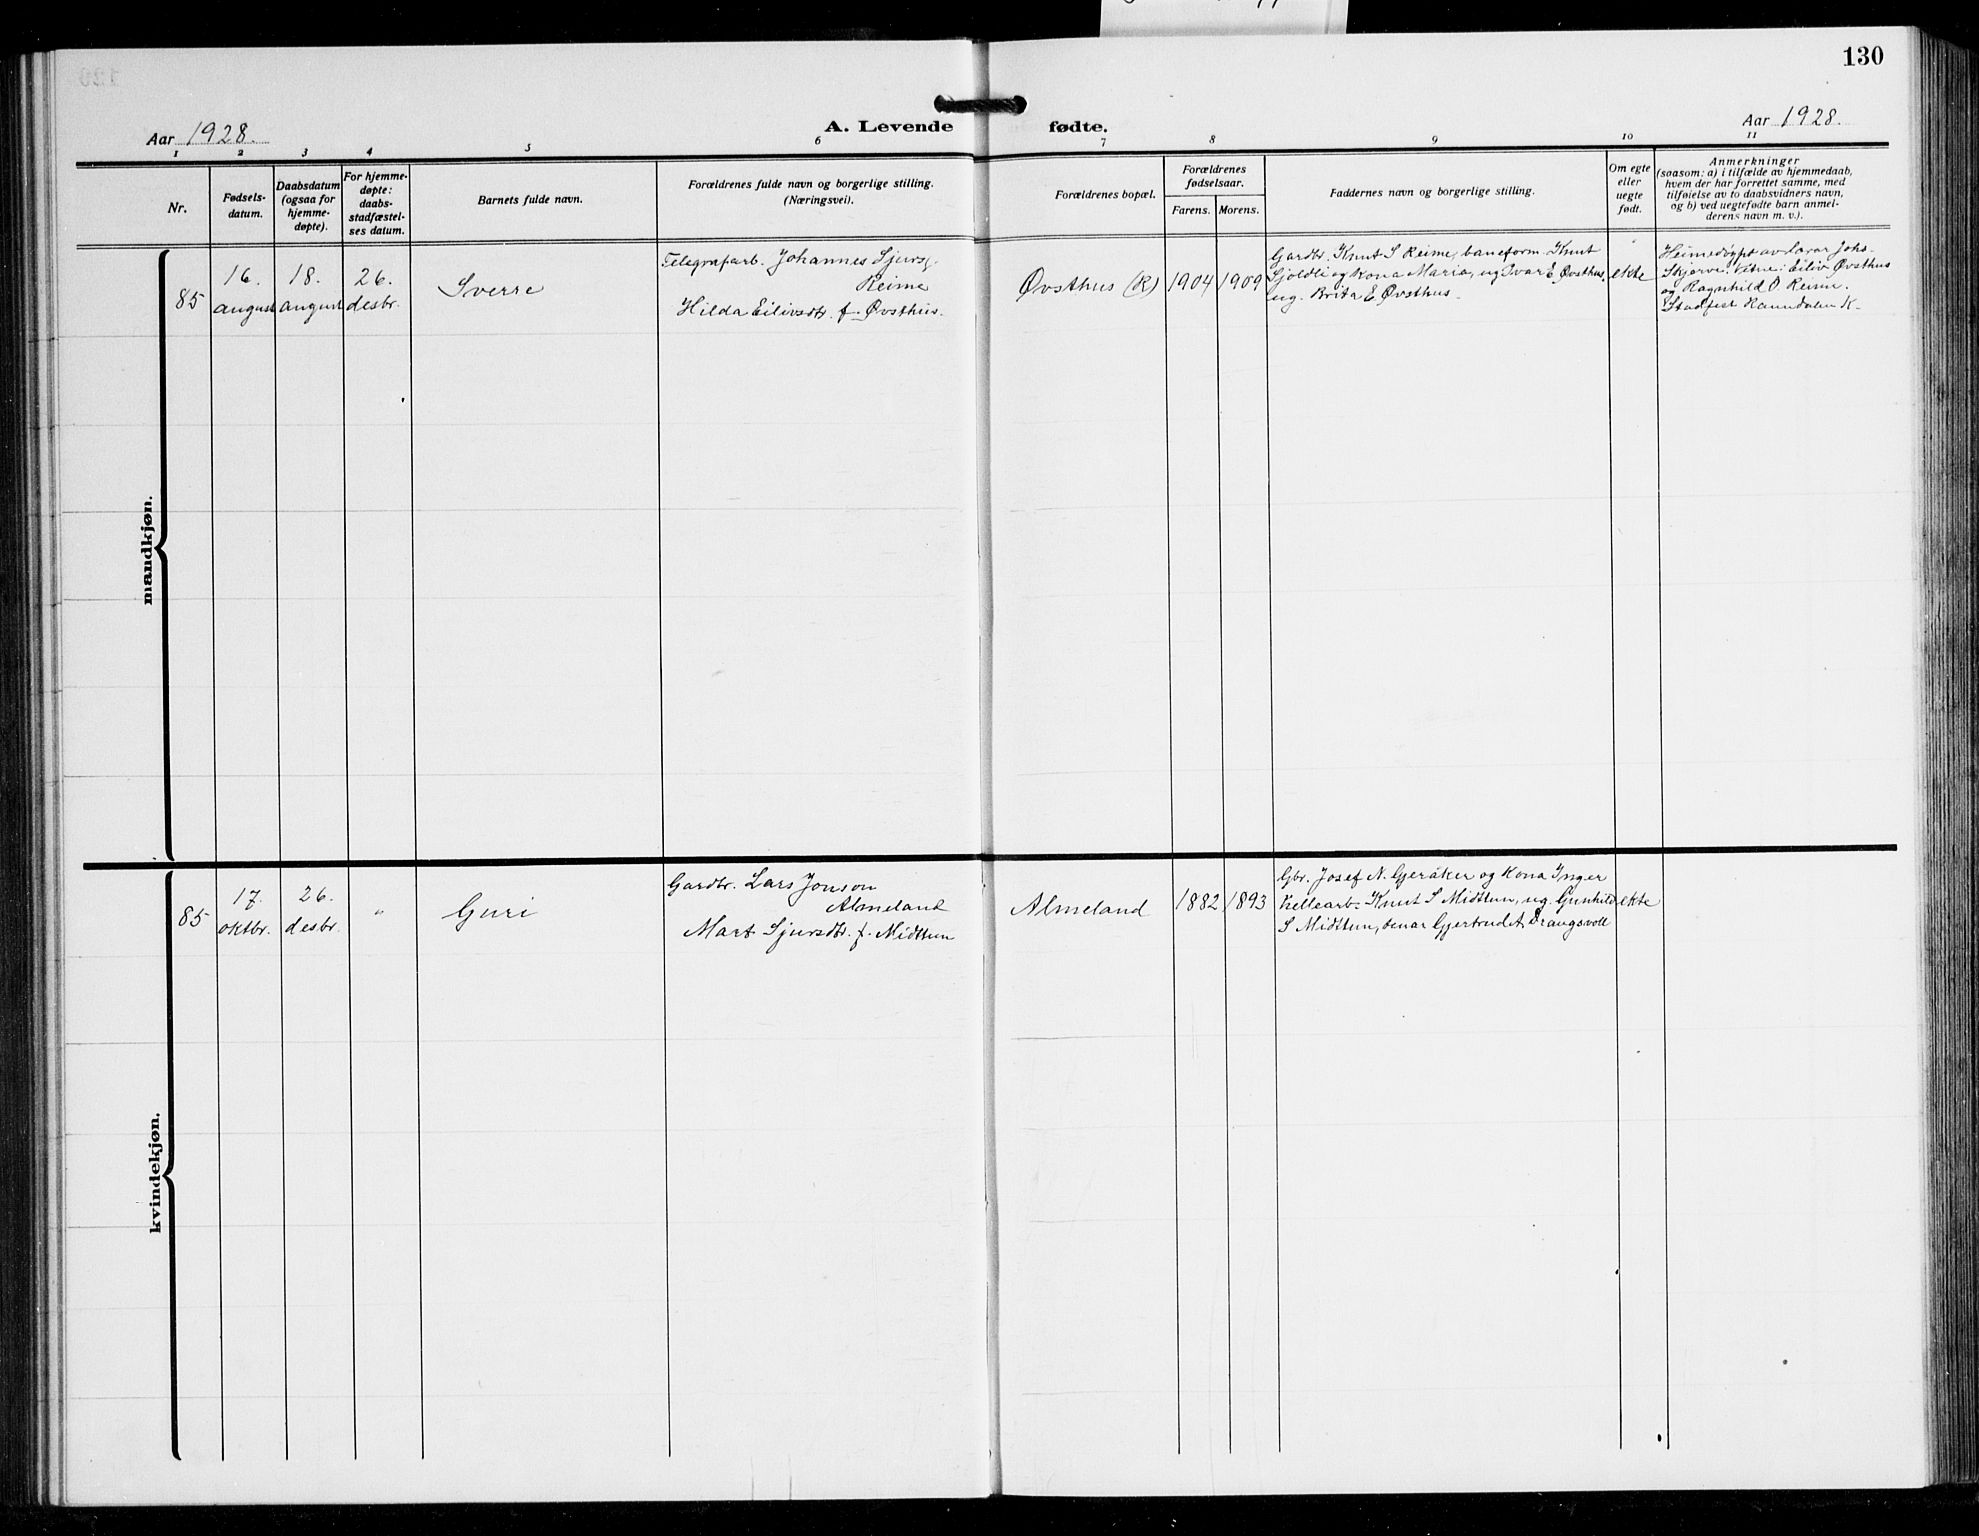 130
Aar 1928.
A. Levende fødte.
Aar 1928.
1 2 3 4 5 6 7 8 9 10 11
Nr.
Fødsels-
datum.
Daabsdatum
(ogsaa for
hjemme-
døpte).
For hjemme-
døpte:
daabs-
stadfæstel-
ses datum.
Barnets fulde navn.
Forældrenes fulde navn og borgerlige stilling.
(Næringsvei).
Forældrenes bopæl.
Forældrenes
fødselsaar.
Farens. Morens.
Faddernes navn og borgerlige stilling.
Om egte
eller
uegte
født.
Anmerkninger
(saasom: a) i tilfælde av hjemmedaab,
hvem der har forrettet samme, med
tilføielse av to daabsvidners navn,
og b) ved uegtefødte barn anmel-
derens navn m. v.).
mandkjøn.
85
16.
august
18.
august
26.
desbr.
Sverre
Telegrafarb. Johannes Sjurs.
Reime
Hilda Eilivsdtr. f. Øvsthus.
Øvsthus (R)
1904
1909
Gardbr. Knut S Reime, baneform. Knut
Gjoldli og kona Maria, ug Ivar E. Øvsthus,
ug. Brita E Øvsthus.
ekte
Heimedøypt av lærar Johs.
Skjerve. Vitne: Eiliv Øvsthus
og Ragnhild O. Reime.
Stadfest Raundalen K.
kvindekjøn.
85
17.
oktbr.
26.
desbr.
"
Guri
Gardbr. Lars Jonson
Almeland
Mart Sjursdtr. f. Midttun
Almeland
1882
1893
Gbr. Josef N. Gjeråker og Kona Inger
Knut S Midttun, ug. Gunhild
S Midttun, Gjertrud A. Draugsvoll
ekte